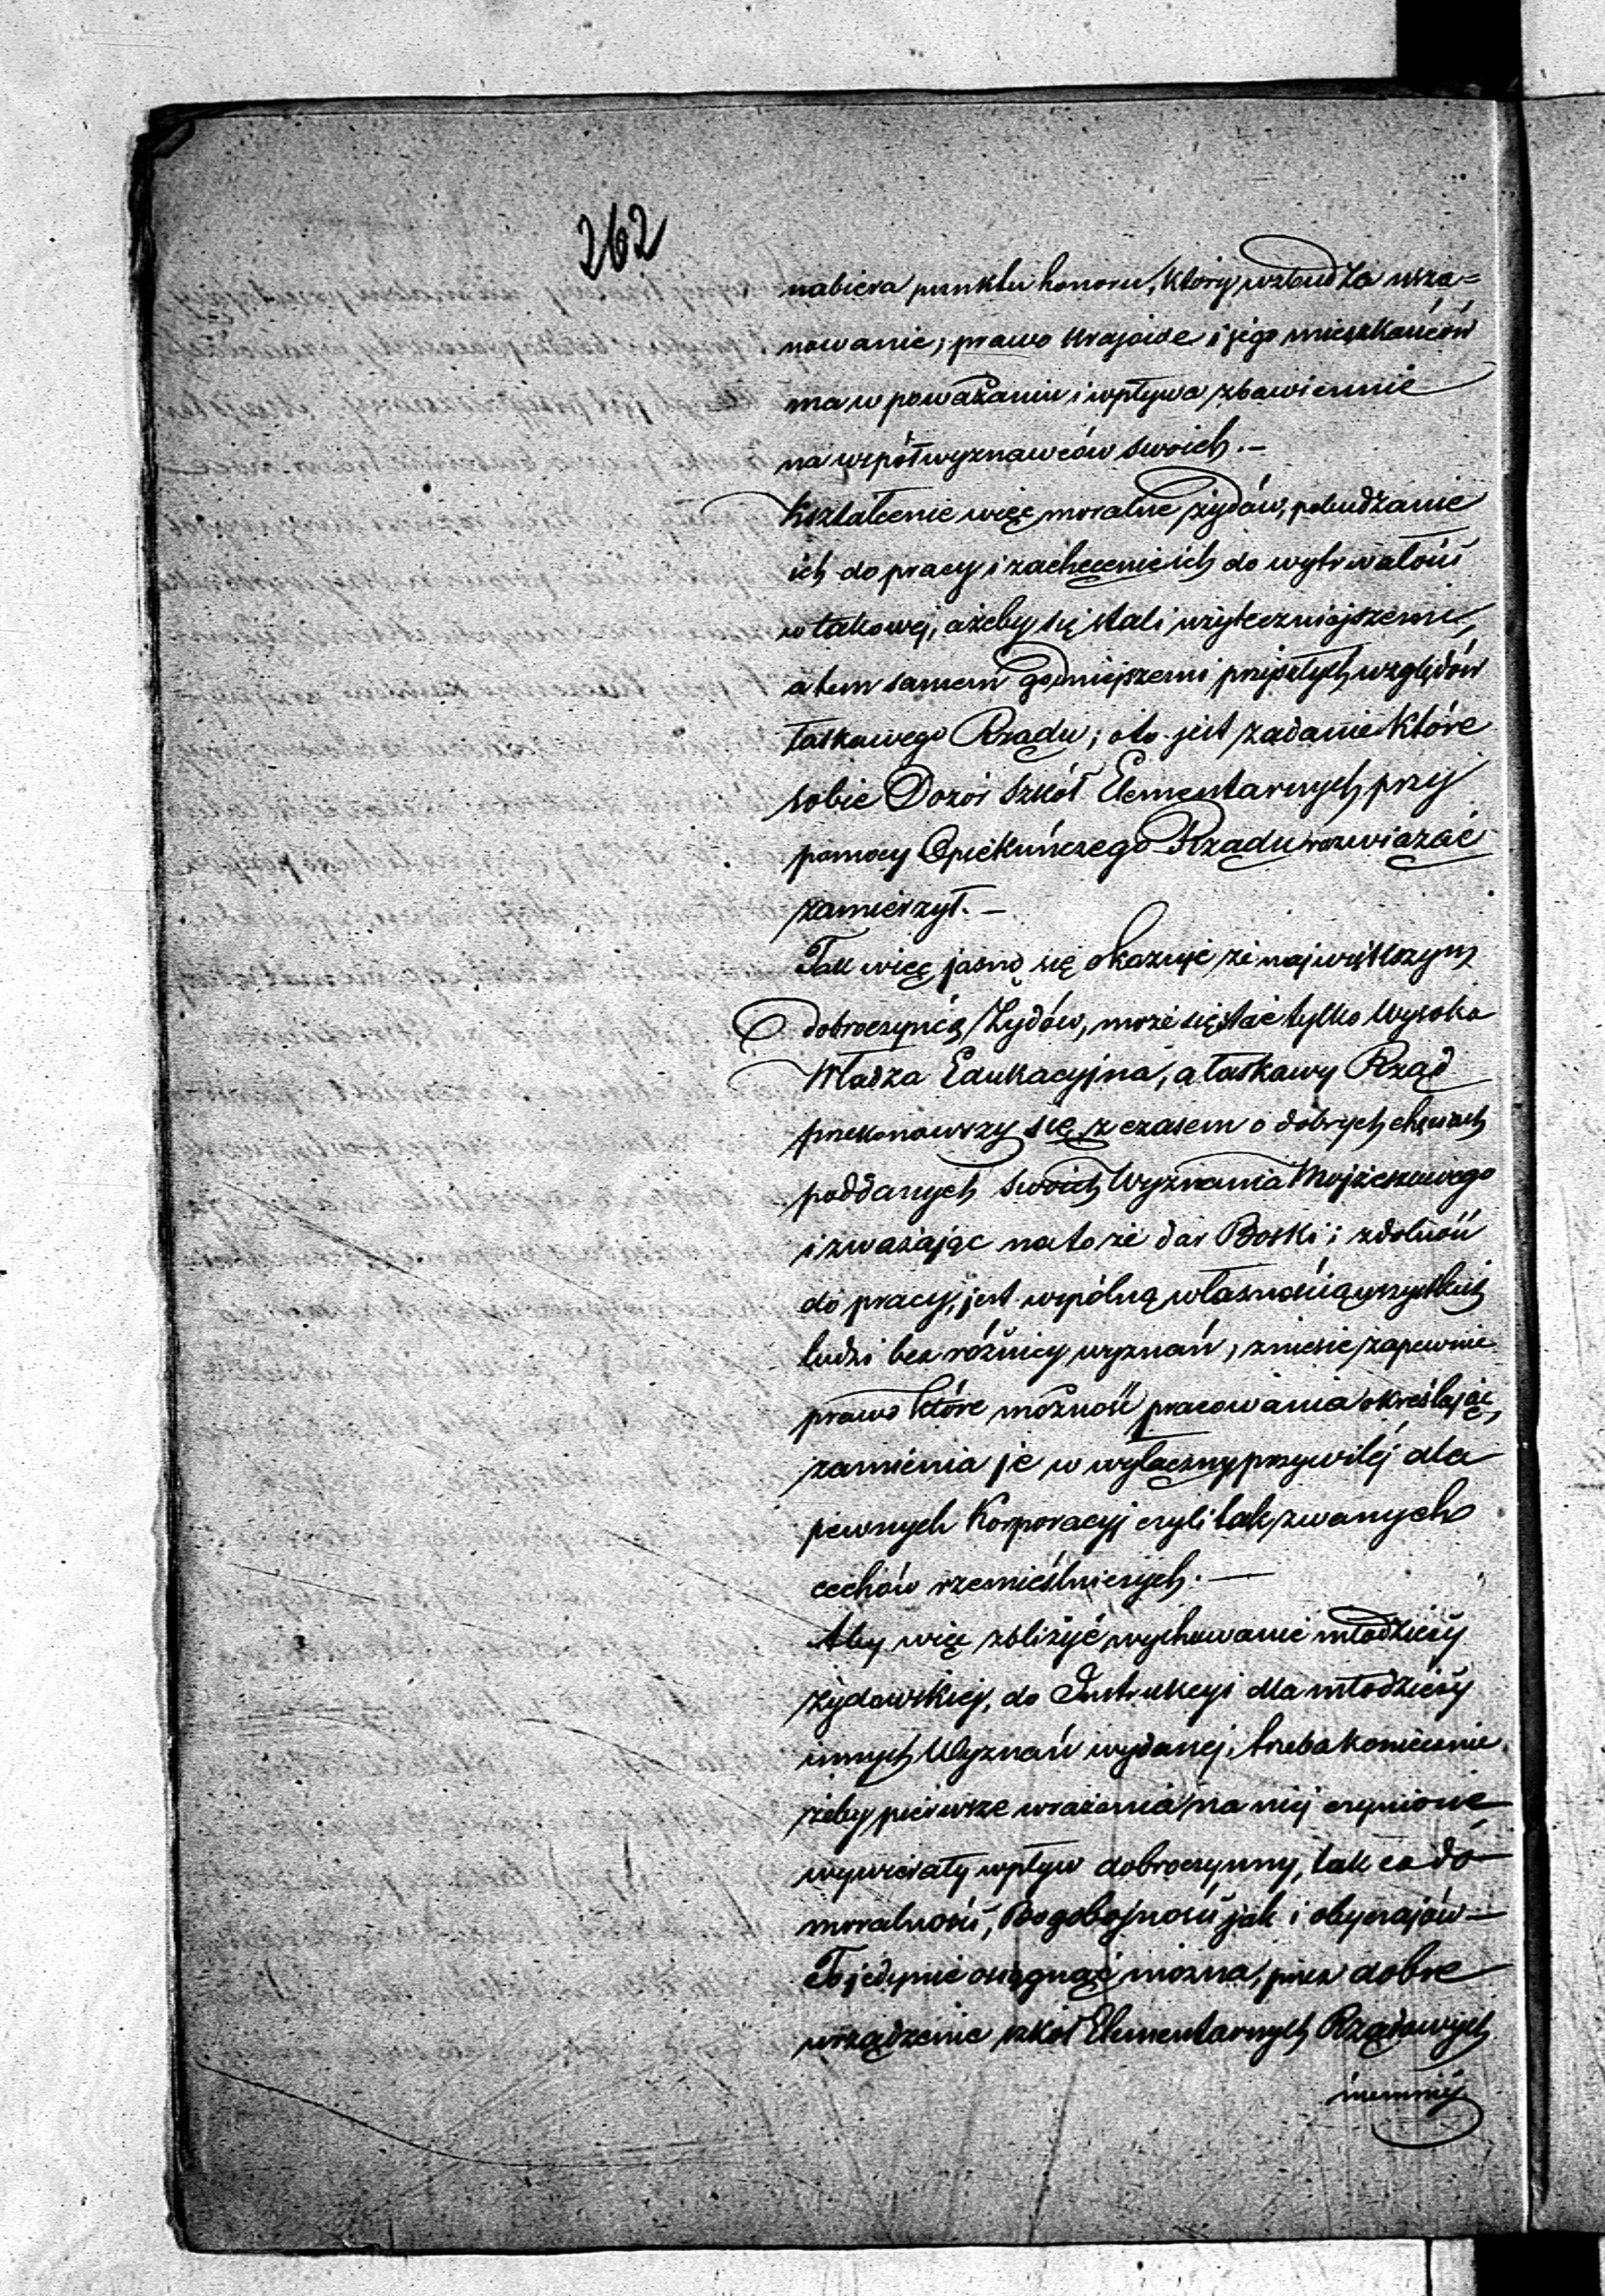 262
nabiera punktu honoru, który wzbudza usza=
nowanie; prawo krajowe i jego mieszkańców
ma w poważaniu i wpływa zbawiennie
na współwyznawców swoich.—
Kształcenie więc moralne żydów, pobudzanie
ich do pracy i zachęcenie ich do wytrwałości
w takowej, ażeby się stali użyteczniejszemi,
a tem samem godniejszemi przyszłych względów
łaskawego Rządu; oto jest zadanie które
sobie Dozór Szkół Elementarnych przy
pomocy Opiekuńczego Rządu rozwiązać
zamierzył.—
Tak więc jasno się okazuje że największym
dobroczyńcą Żydów, może się stać tylko Wysoka
Władza Edukacyjna, a łaskawy Rząd
przekonawszy się z czasem o dobrych chęciach
poddanych swoich Wyznania Mojżeszowego
i zważając na to że dar Boski i zdolność
do pracy, jest wspólną własnością wszystkich
ludzi bez różnicy wyznań, zniesie zapewnie
prawo które możność pracowania określając,
zamienia je w wyłączny przywilej dla
pewnych Korporacyj czyli tak zwanych
cechów rzemieślniczych.—
Aby więc zbliżyć wychowanie młodzieży
żydowskiej, do Instrukcyi dla młodzieży
innych Wyznań wydanej, trzeba koniecznie
żeby pierwsze wrażenia na niej czynione
wywierały wpływ dobroczynny, tak co do
moralności, Bogobojności jak i obyczajów—
To jedynie osiągnąć można, przez dobre
urządzenie szkół Elementarnych Rządowych